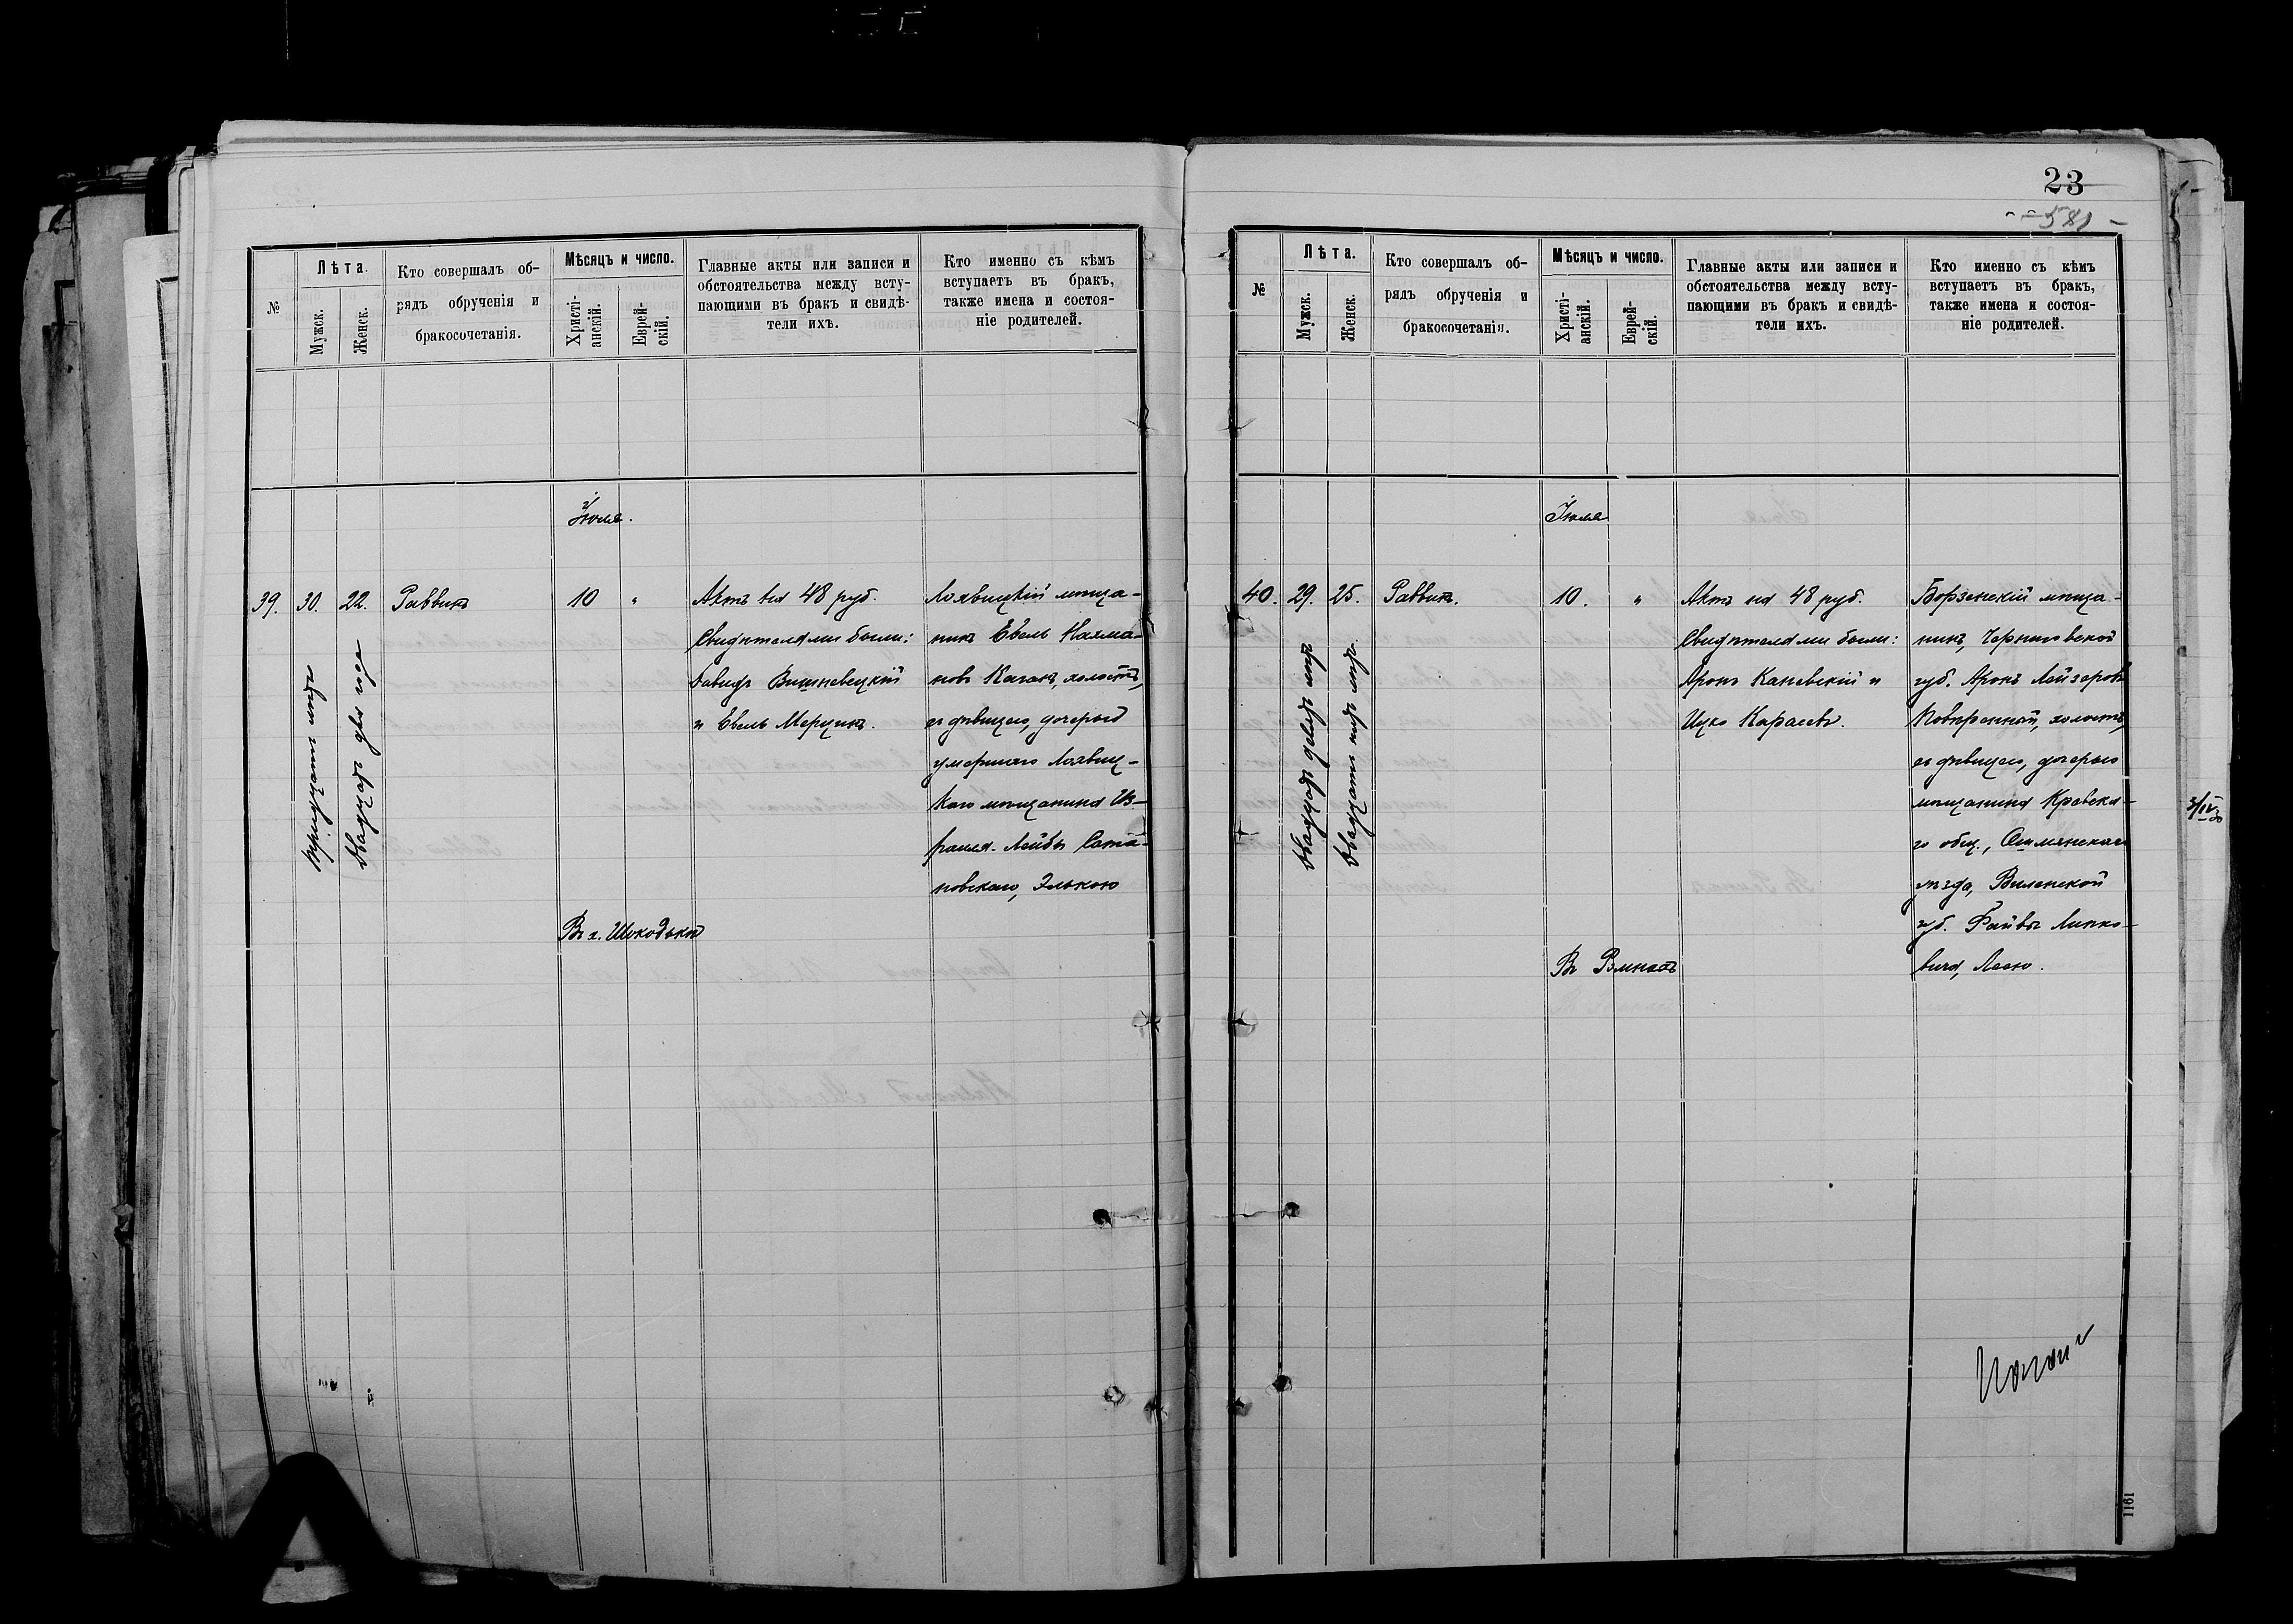 №
Лѣта.
Мужск.
Женск.
Кто совершалъ об-
рядъ обрученія и
бракосочетанія.
Мѣсяцъ и число.
Христі-
анскій.
Еврей-
скій.
Главные акты или записи и
обстоятельства между всту-
пающими въ бракъ и свидѣ-
тели ихъ.
Кто именно съ кѣмъ
вступаетъ въ бракъ,
также имена и состоя-
ніе родителей.
Іюля.
39.
30.
тридцать
22.
двадцать два года
Раввинъ
10
"
Актъ на 48 руб.
Свидѣтелями были:
Давидъ Вишневецкій
и Евель Мерцинъ.
Лохвицкій мѣща-
нинъ Евель Нахма-
новъ Каганъ, холостъ,
съ дѣвицею, дочерью
умершаго Лохвиц-
каго мѣщанина Из-
раиля-Лейбы Сата-
новскаго, Элькою
Въ
23
580
№
Лѣта.
Мужск.
Женск.
Кто совершалъ об-
рядъ обрученія и
бракосочетанія.
Мѣсяцъ и число.
Христі-
анскій.
Еврей-
скій.
Главные акты или записи и
обстоятельства между всту-
пающими въ бракъ и свидѣ-
тели ихъ.
Кто именно съ кѣмъ
вступаетъ въ бракъ,
также имена и состоя-
ніе родителей.
Іюля
40.
29.
двадцать девять лѣтъ
25.
двадцать пять лѣтъ
Раввинъ.
10.
"
Актъ на 48 руб.
Свидѣтелями были:
Аронъ Каневскій и
Ицко Карасевъ.
Борзенскій мѣща-
нинъ, Черниговской
губ. Аронъ Лейзеровъ
холостъ,
съ дѣвицею, дочерью
мѣщанина Кревска-
го общ., Ошмянскаго
уѣзда, Виленской
губ. Файвы Липко-
вича, Лею.
Въ Ромнахъ
1161